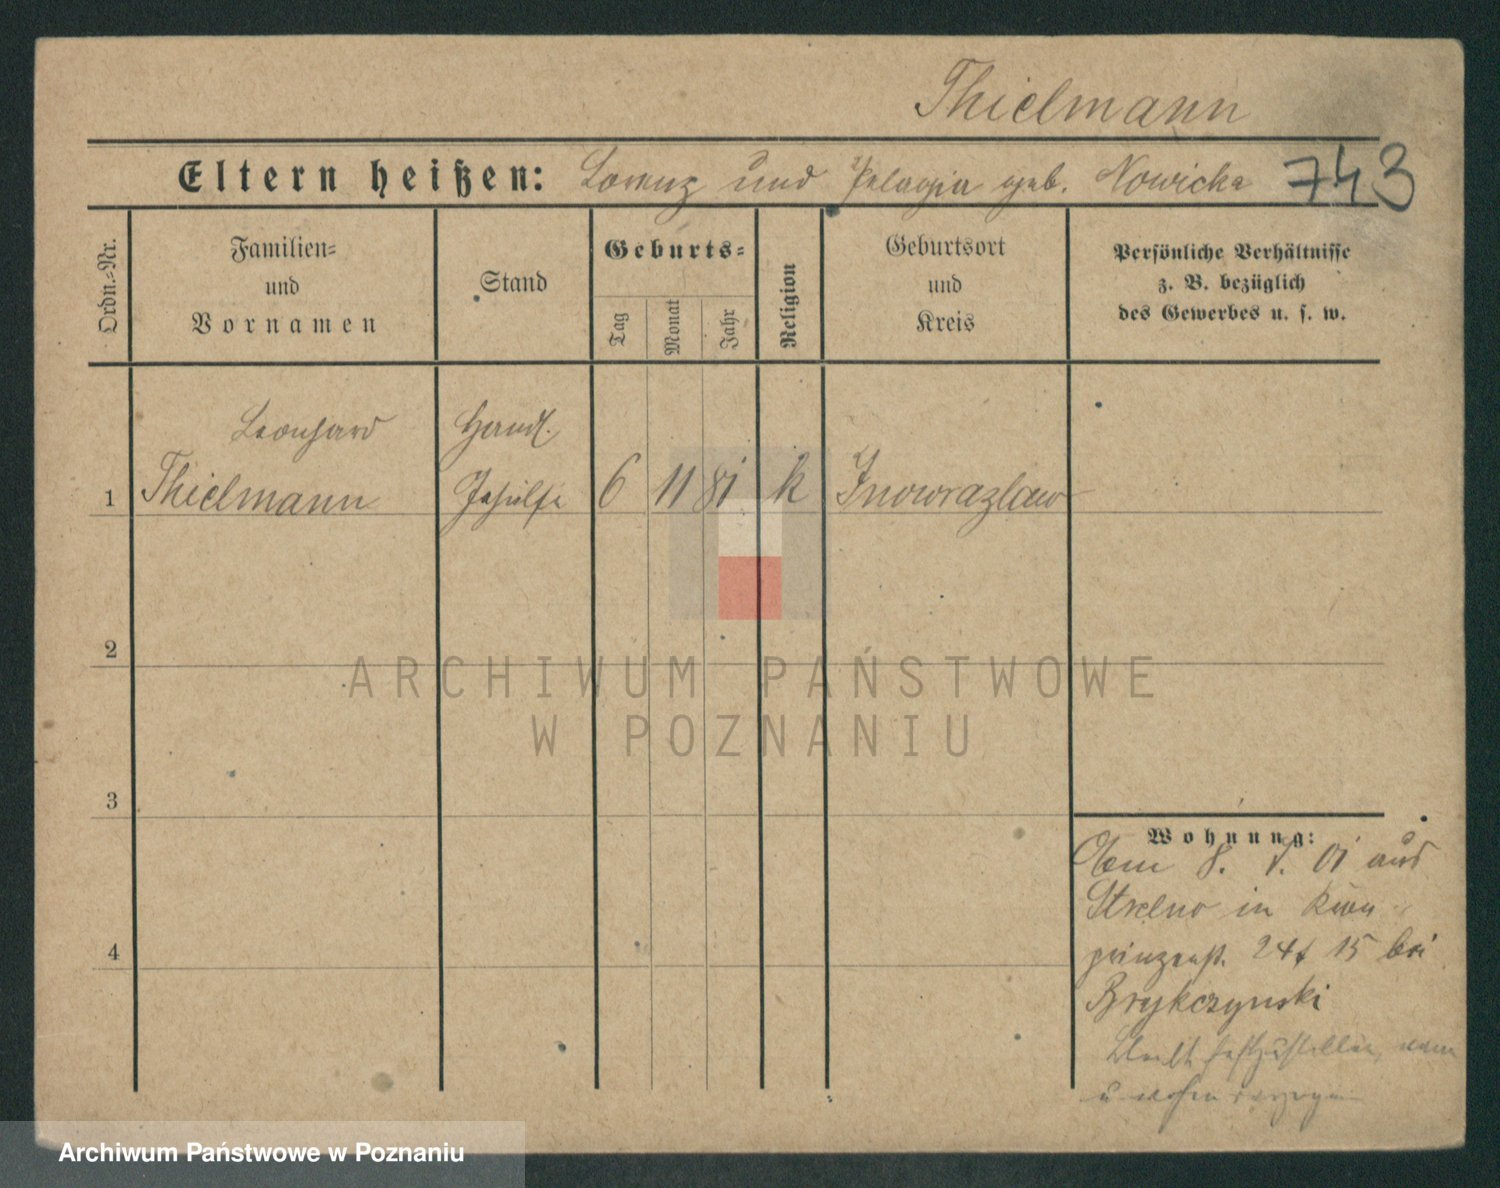 Thielmann
Eltern heißen: Lorenz und Pelagia geb. Nowicka 743
Ordn.-Nr.
Familien-
und
Vornamen
Stand
Geburts-
Tag
Monat
Jahr
Religion
Geburtsort
und
Kreis
Persönliche Verhältnisse
z. B. bezüglich
des Gewerbes u. s. w.
Leonhard Handl.
1 Thielmann Gehülfe 6 11 81 k Inowrazlaw
2
ARCHIWUM PAŃSTWOWE
W POZNANIU
3
Wohnung:
8. 01 aus
Strelno in Kron
prinzenst. 24 15 bei
Brykczynski
festzustellen, wann
u wohin verzogen
4
Archiwum Państwowe w Poznaniu